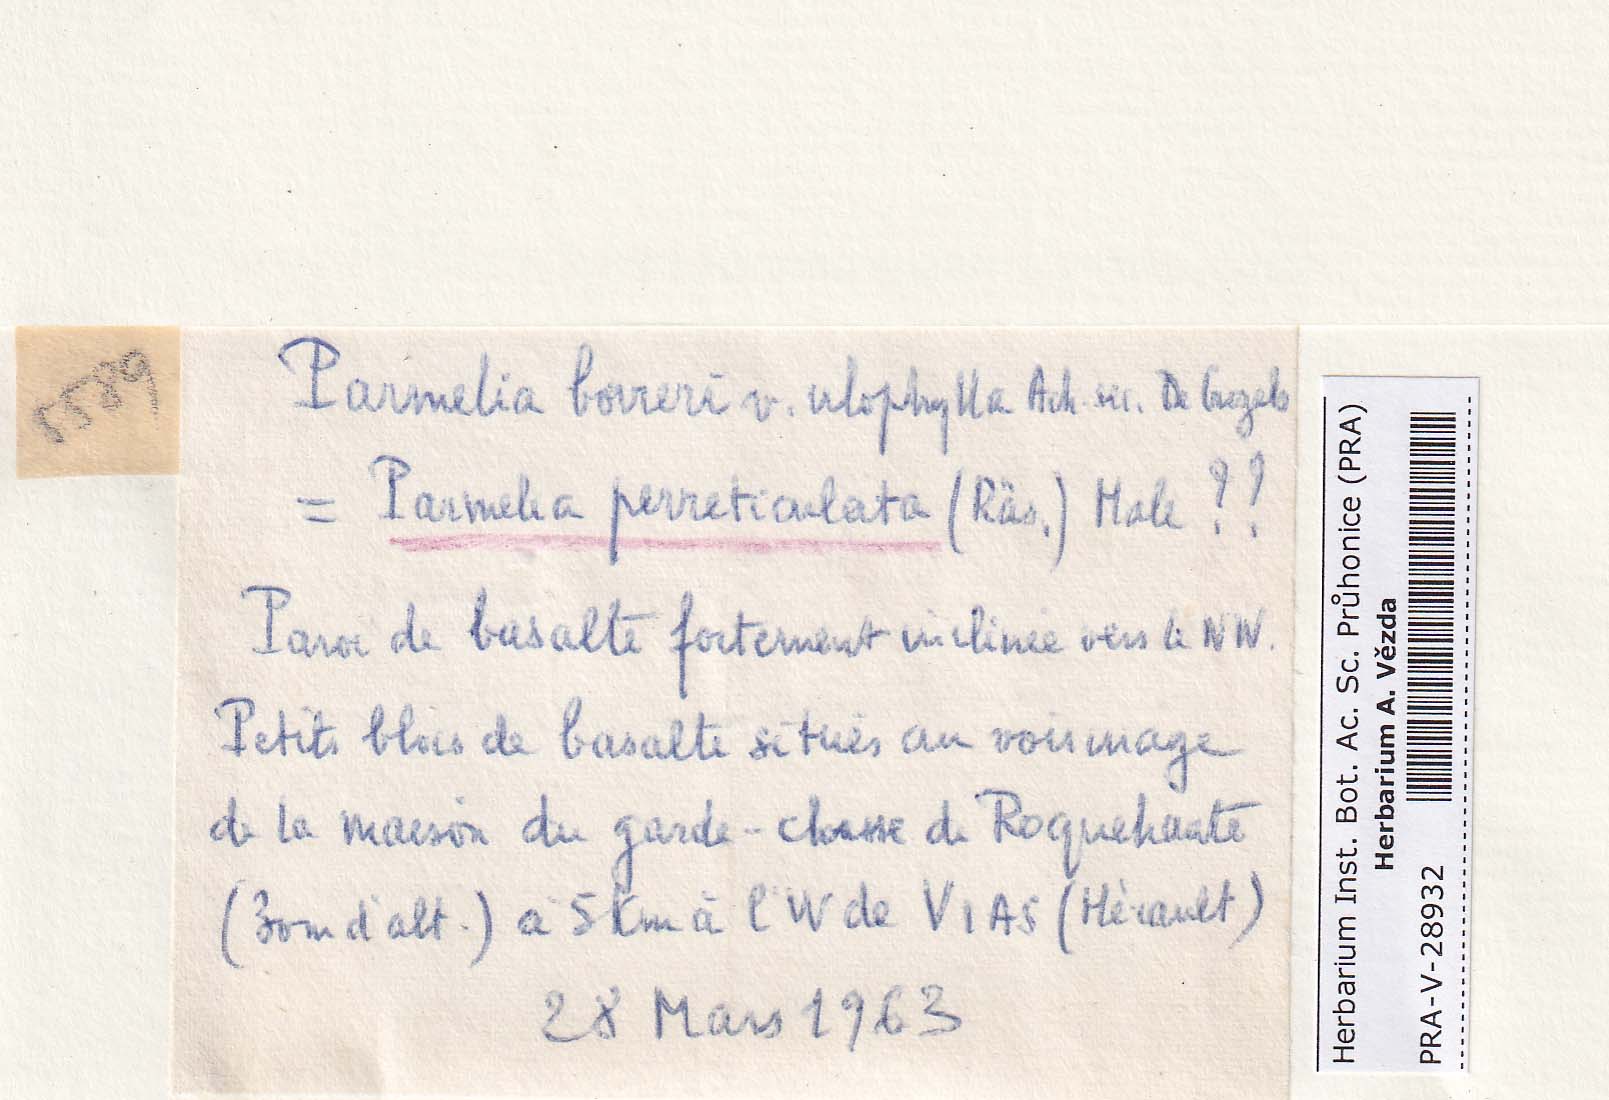 Parmelia borreri v. ulophylla Ach. sic. De Crozals
= Parmelia perreticulata (Räs.) Hale ??
Paroi de basalte fortement inclinée vers le NW.
Petits blocs de basalte situés au voisinage
de la maison du garde-chasse de Roquehaute
(30m d'alt.) à 5 Km à l'W de VIAS (Hérault)
28 Mars 1963
Herbarium Inst. Bot. Ac. Sc. Průhonice (PRA)
Herbarium A. Vězda
PRA-V-28932